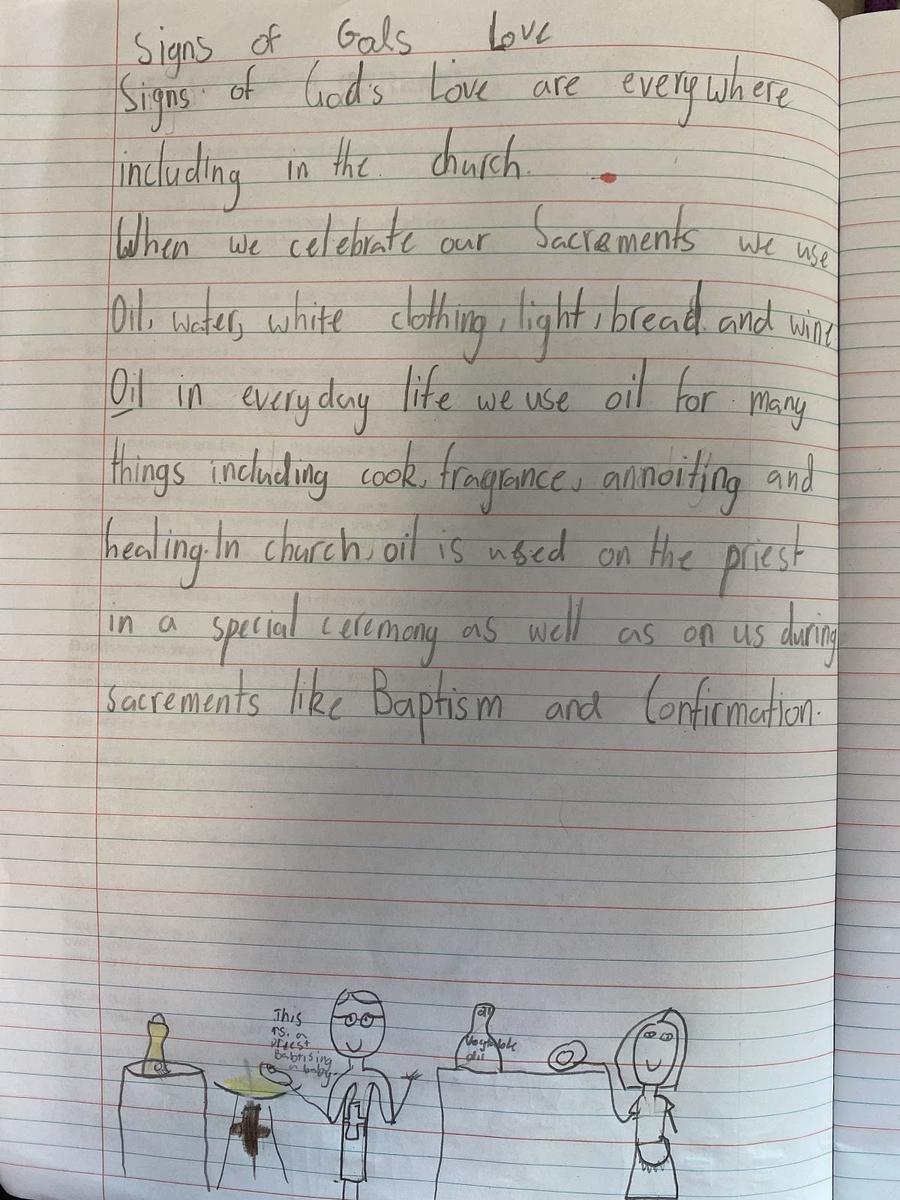 Signs of Gals Love
Signs of God's Love are everywhere
including in the church.
When we celebrate our Sacrements we use
Oil, water, white clothing, light, bread and wine
Oil in everyday life we use oil for many
things including cook, fragrance, annoiting and
healing. In church, oil is used on the priest
in a special ceremony as well as on us during
sacrements like Baptism and Confirmation.
This
is a
priest
babtising
a baby
Vegetable
oil